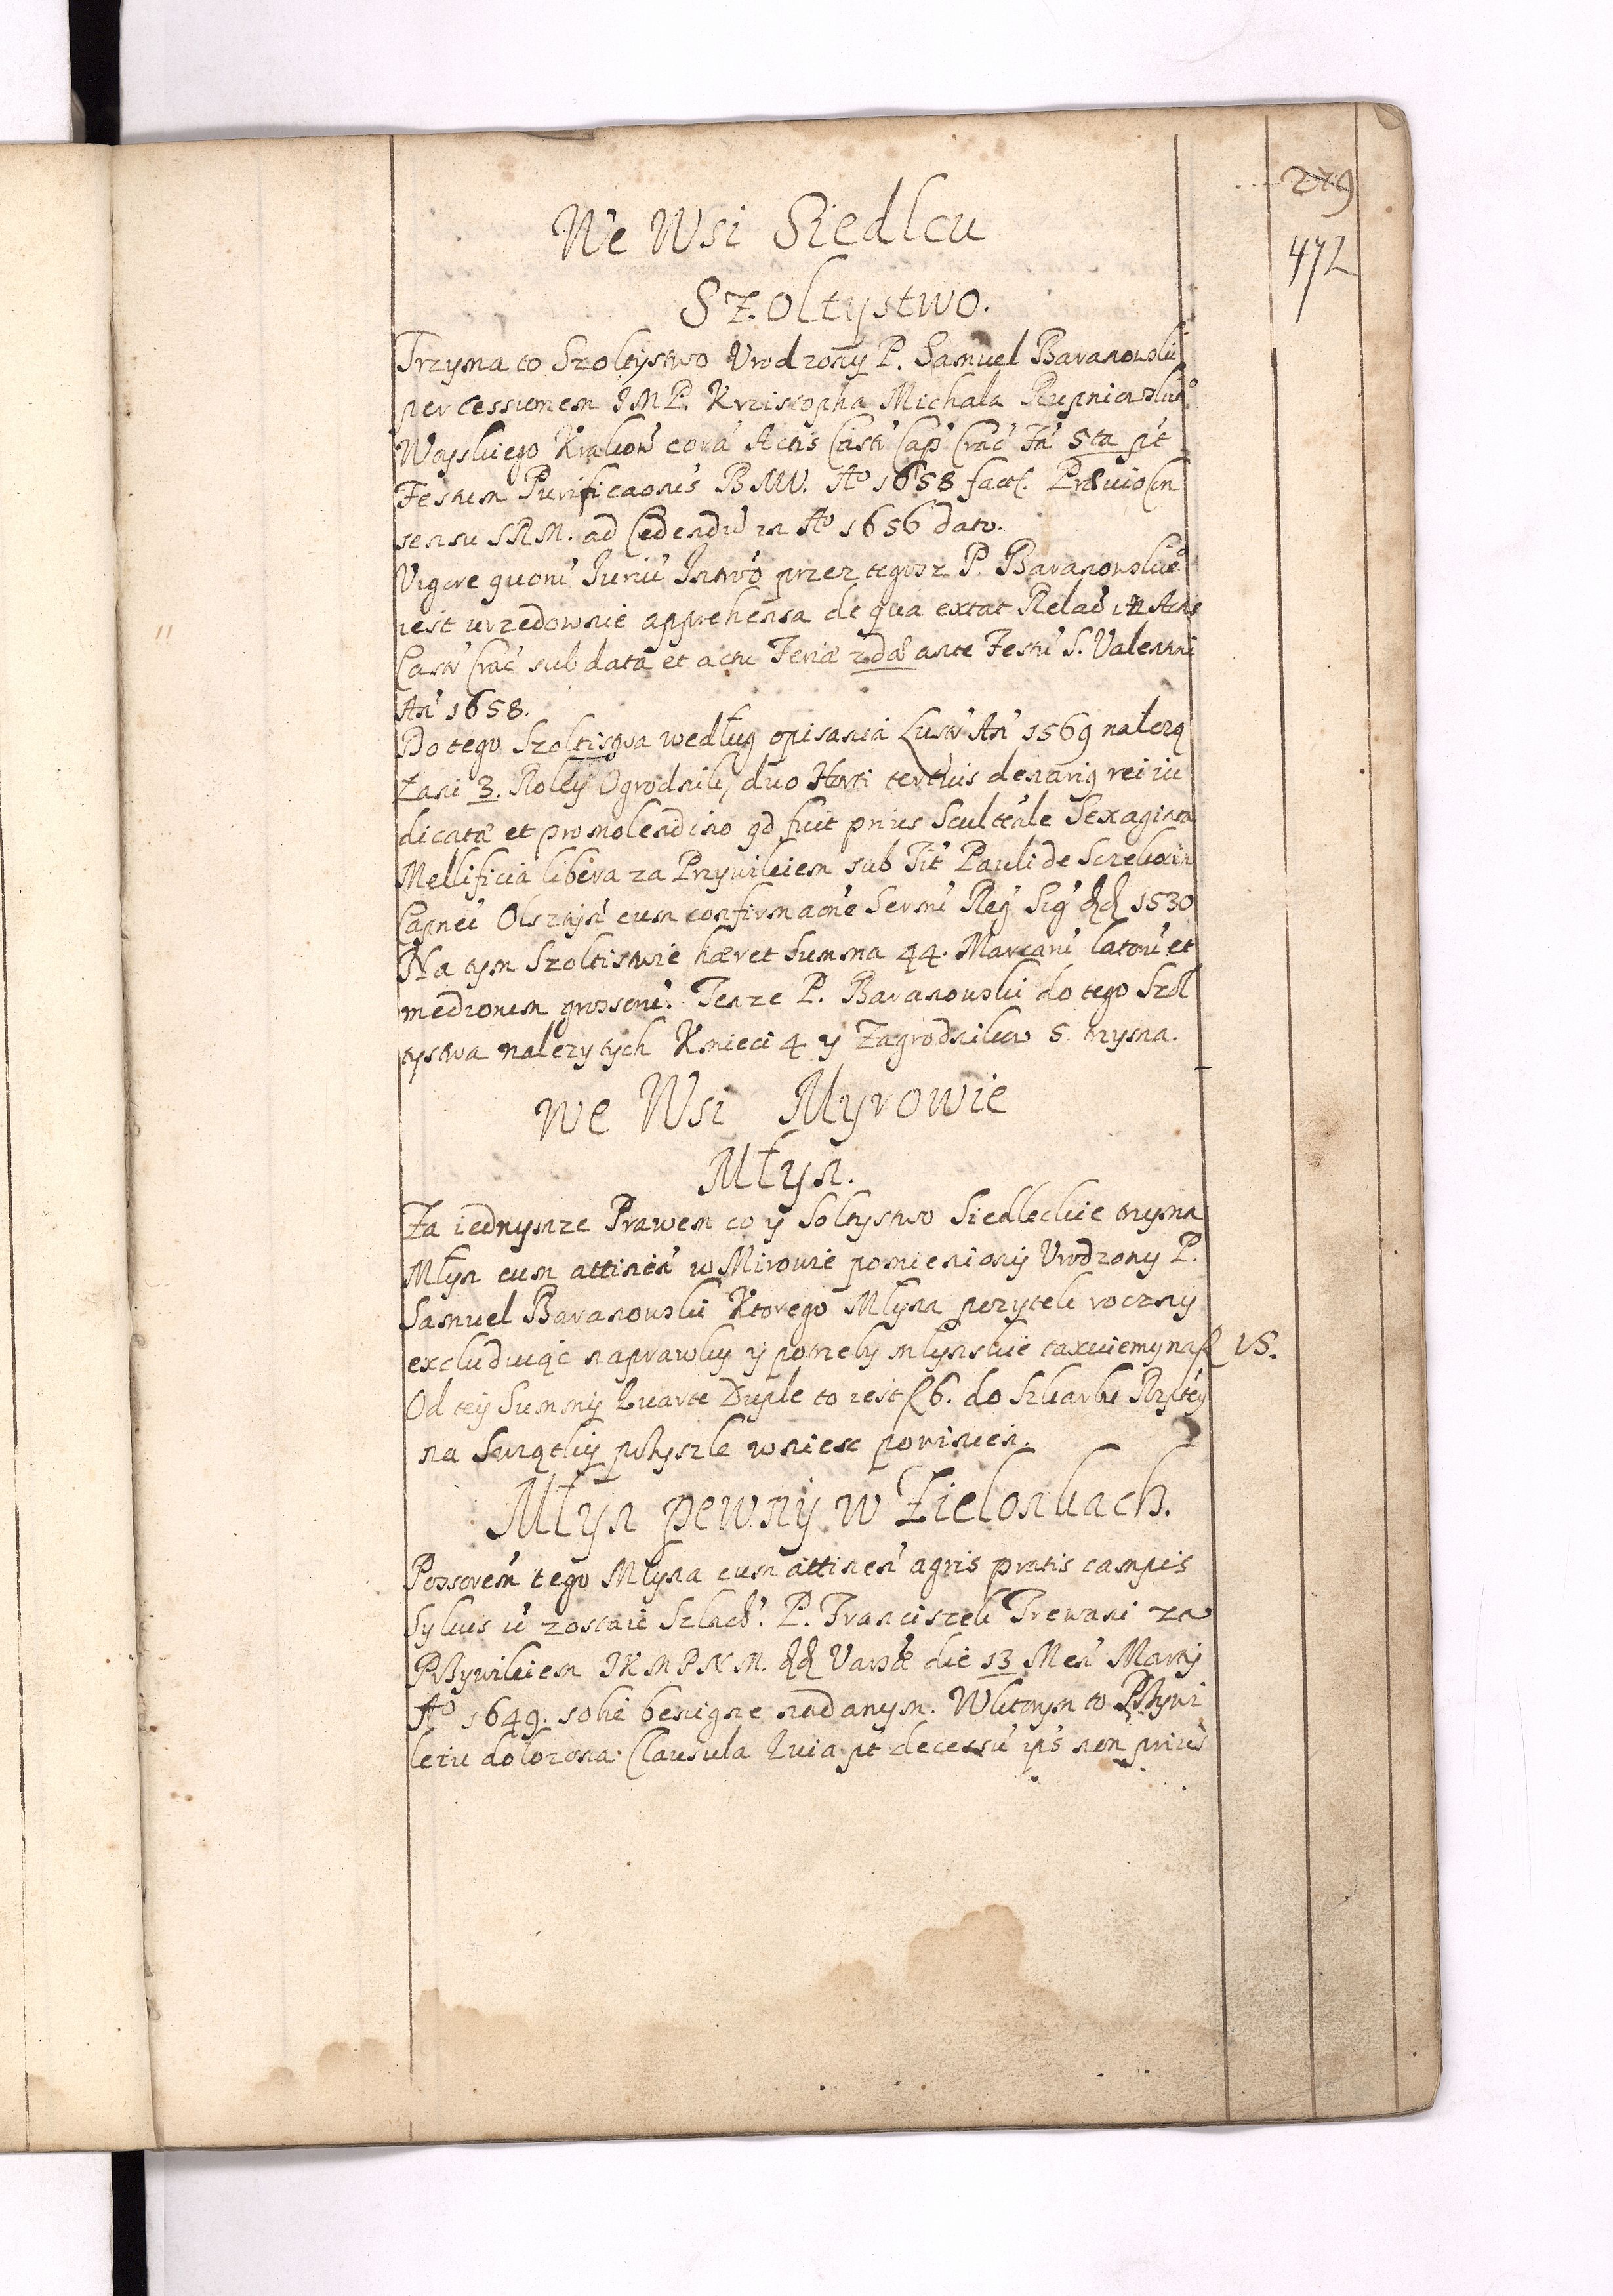 279
472
We Wsi Siedlcu
Szoltystwo.
Trzyma to Szoltystwo Vrodzony P. Samuel Baranowski
per cessionem JMP. Krzistopha Michala Rupniowskieo
Woyskiego Krakow' cora' Actis Castr' Cap' Crac' Fa' 5ta p't
Festum Purificaonis BMV. Ao 1658 fact. Prævio Con
sensu SRM. ad Cedendu' in Ao 1656 dato.
Vigore quoru' Juriu' Intro' przez tegosz P. Baranowskieo
iest urzedownie apprehensa de qua extat Relao' in Actis
Castr' Crac' sub data et actu Feriæ 2dæ ante Festu' S. Valentini
An' 1658.
Do tego Szoltistva według opisania Lustr' An' 1569 nalezą
Łani 3. Roley Ogrodnik, duo Horti tertius denarig rei iu
dicatæ et pro molendino qd fuit prius Scultetale Sexaginta
Mellificia libera za Przywileiem sub Tit' Pauli de
Capnei' Olsztyn' cum confirmaone Sermi' Reg' Sig' 1530
Na tym Szoltistwie hæret Summa 44. Marcaru' latoru' et
medionem grossoru'. Tenze P. Baranowski do tego Szol
tystwa nalezytych Kmieci 4 y Zagrodnikow 5. trzyma.
We Wsi Myrowie
Młyn.
Za iednymze Prawem co y Soltystwo Siedleckie trzyma
Młyn cum attinen' w Mirowie pomieniony Vrodzony P.
Samuel Baranowski Ktorego Młyna pozytek roczny
excluduiąc naprawky y potrzeby młynskie taxuiemy na f 15.
Od tey Summy Quarte Duple to iest f 6. do Szkarbu Rzltey
na Swiątky przyszle wniesc powinien.
Młyn pewny w Zielonkach.
Possorem' tego Młyna cum attinen' agris pratis campis
Syluis ii zostaie Szlach'. P. Franciszek Trewani za
Przywileiem JKMPNM. Varsæ die 13 Men' Martij
Ao 1649. sobie benigne nadanym. Wktorym to Przywi
leiu dolozona Clausula Quia pt decessu' ips' non prius